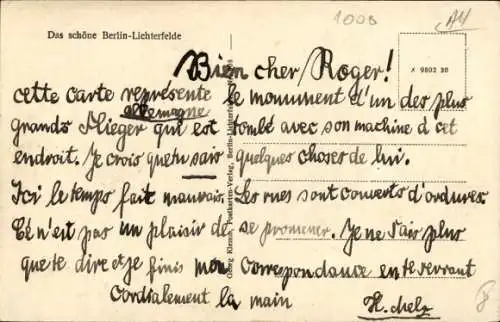 1000
A4
Das schöne Berlin-Lichterfelde
x 9802 30
Bien cher Roger!
cette carte represente le monument d'un des plus
allemagne
grands Flieger qui est tombé avec son machine d cet
endroit. Je crois que tu sais quelques choses de lui.
Ici le temps fait mauvais. Les rues sont couverts d'ordures.
Cé n'est pas un plaisir de se promener. Je ne sais plus
que te dire et je finis mon correspondance en te serrant
cordialement la main
H. Melz
Georg Klemm, Postkarten-Verlag, Berlin-Lichterfelde